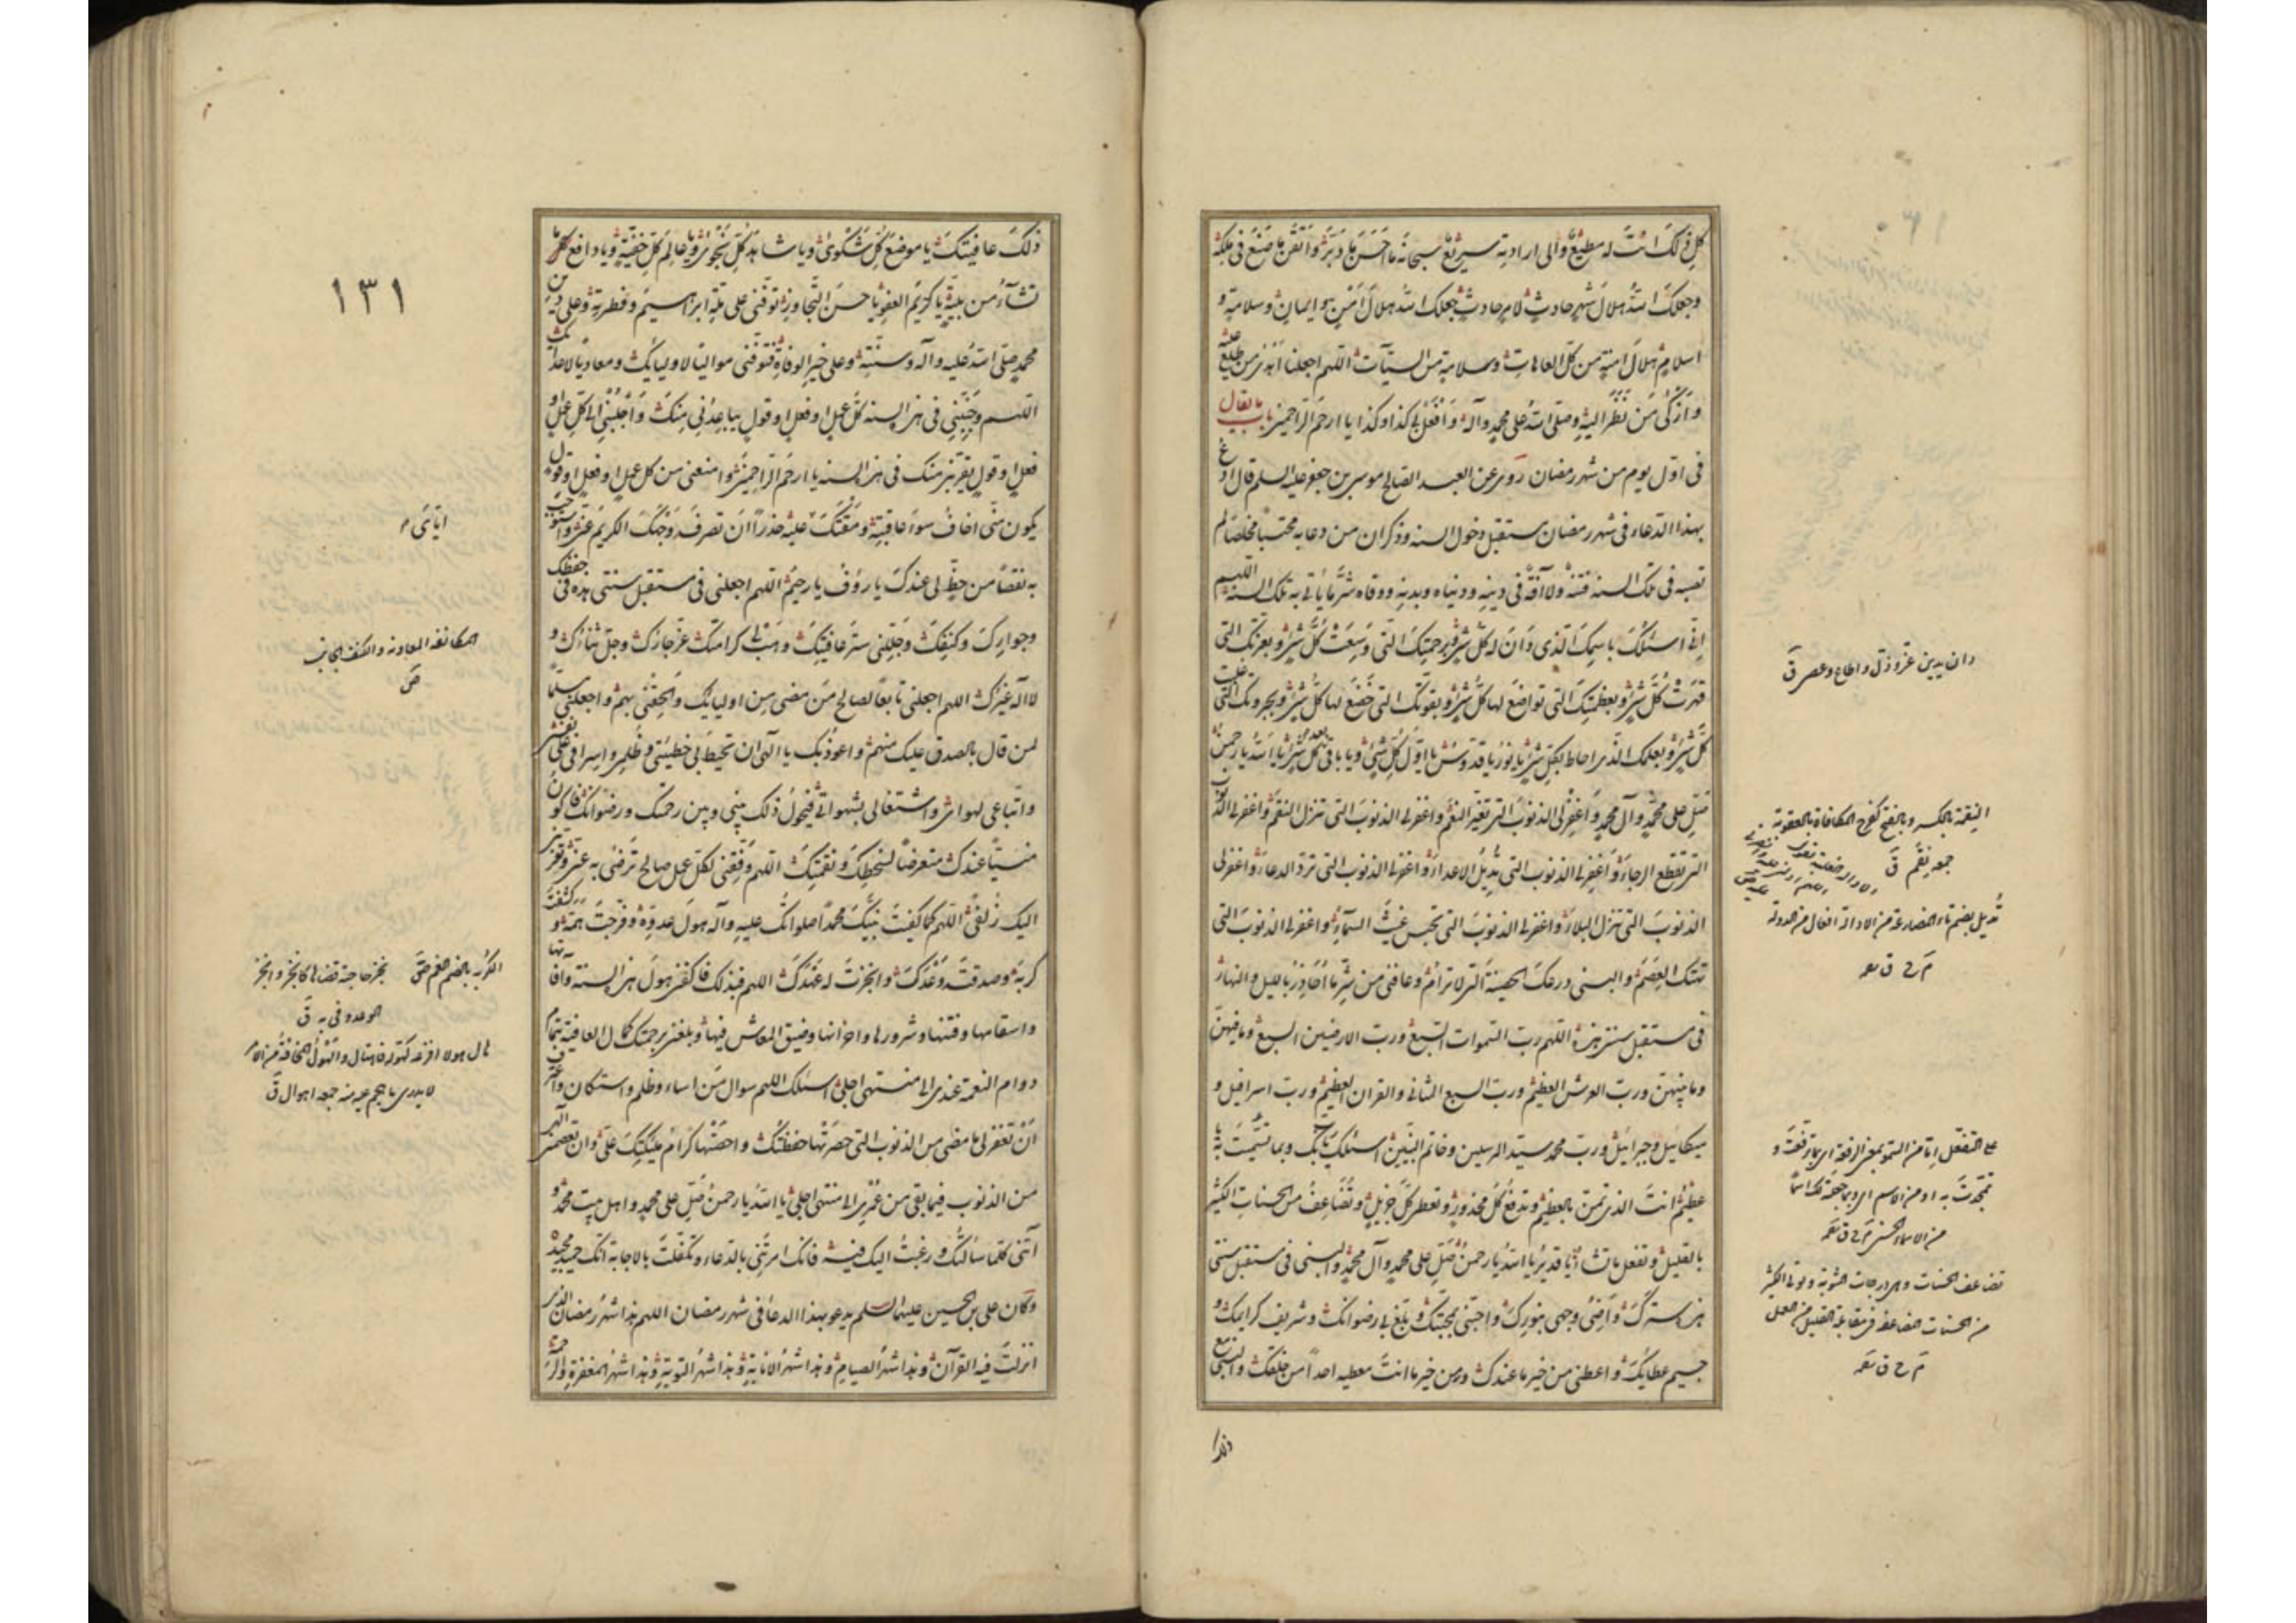 كل ذلك انت له مطيع والى ارادته سريع سبحانه ما احسن ما دبر واتقن ما صنع فى ملكه
وجعلك الله هلال شهر حادث لامر حادث جعلك الله هلال امن وايمان وسلامة و
اسلام هلال امنة من كل العاهات وسلامة من السيآت اللهم اجعلنا اهدى من طلع عليه
وازكى من نظر اليه وصلى الله على محمد وآله وافعل بى كذا وكذا يا ارحم الراحمين باب ما يقال
فى اول يوم من شهر رمضان روى عن العبد الصالح موسى بن جعفر عليه السلم قال ادع
بهذا الدعاء فى شهر رمضان مستقبل دخول السنه وذكر ان من دعا به محتسبا مخلصا لم
تصبه فى تلك السنه فتنة ولا آفة فى دينه ودنياه وبدنه ووقاه شر ما ياتى به تلك السنة اللهم
انى اسئلك باسمك الذى دان له كل شئ وبرحمتك التى وسعت كل شئ وبعزتك التى
قهرت كل شئ وبعظمتك التى تواضع لها كل شئ وبقوتك التى خضع لها كل شئ وبجبروتك التى غلبت
كل شئ وبعلمك الذى احاط بكل شئ يا نور يا قدوس يا اول كل شئ ويا باقى بعد كل شئ يا الله يا رحمن
صل على محمد وآل محمد واغفر لى الذنوب التى تغير النعم واغفر لى الذنوب التى تنزل النقم واغفر لى الذنوب
التى تقطع الرجاء واغفر لى الذنوب التى تديل الاعداء واغفر لى الذنوب التى ترد الدعاء واغفر لى
الذنوب التى تنزل البلاء واغفر لى الذنوب التى تحبس غيث السمآء واغفر لى الذنوب التى
تهتك العصم والبسنى درعك الحصينة التى لا ترام وعافنى من شر ما احاذر بالليل والنهار
فى مستقبل سنتى هذه اللهم رب السموات السبع ورب الارضين السبع وما فيهن
وما بينهن ورب العرش العظيم ورب السبع المثانى والقران العظيم ورب اسرافيل و
ميكائيل وجبرائيل ورب محمد سيد المرسلين وخاتم النبيين اسئلك بك وبما تسميت به يا
عظيم انت الذى تمن بالعظيم وتدفع كل محذور وتعطى كل جزيل وتضاعف من الحسنات الكثير
بالقليل وتفعل ما تشاء يا قدير يا الله يا رحمن صل على محمد وآل محمد والبسنى فى مستقبل سنتى
هذه سترك واضئ وجهى بنورك واحبنى بمحبتك وبلغ بى رضوانك وشريف كرايمك و
جسيم عطائك واعطنى من خير ما عندك ومن خير ما انت معطيه احدا من خلقك والبسنى مع
ذلك
دان يدين عز وذل واطاع وعصى ق
النقمة بالكسر وبالفتح كفرح المكافاة بالعقوبة
جمعه نقم ق
تديل بضم تاء المضارعة من الادالة افعال من الدولة
م ح ق
على التفعل اما من السمو بمعنى الرفعة اى بما ترفعت و
تمجدت به او من الاسم اى وبما جعلته لك اسما
من الاسماء الحسنى م ح ق
تضاعف الحسنات
من الحسنات
م ح ق
ذلك عافيتك يا موضع كل شكوى ويا شاهد كل نجوى ويا عالم كل خفية ويا دافع كل ما
تشآء من بلية يا كريم العفو يا حسن التجاوز توفنى على ملة ابراهيم وفطرته وعلى دين
محمد صلى الله عليه وآله وسنته وعلى خير الوفاة فتوفنى مواليا لاوليائك ومعاديا لاعدائك
اللهم وجنبنى فى هذه السنه كل عمل او فعل او قول يباعدنى منك واجلبنى الى كل عمل او
فعل او قول يقربنى منك فى هذه السنه يا ارحم الراحمين وامنعنى من كل عمل او فعل او قول
يكون منى اخاف سوء عاقبته ومقتك عليه حذرا ان تصرف وجهك الكريم عنى واستوجب
به نقصا من حظ لى عندك يا رؤف يا رحيم اللهم اجعلنى فى مستقبل سنتى هذه فى حفظك
وجوارك وكنفك وجللنى ستر عافيتك وهب لى كرامتك عز جارك وجل ثناؤك و
لا اله غيرك اللهم اجعلنى تابعا لصالح من مضى من اوليائك والحقنى بهم واجعلنى مسلما
لمن قال بالصدق عليك منهم واعوذ بك يا الهى ان تحيط بى خطيئتى وظلمى واسرافى على نفسى
واتباعى لهواى واشتغالى بشهواتى فيحول ذلك بينى وبين رحمتك ورضوانك فاكون
منسيا عندك متعرضا لسخطك ونقمتك اللهم وفقنى لكل عمل صالح ترضى به عنى وتقربنى
اليك زلفى اللهم كما كفيت نبيك محمدا صلواتك عليه وآله هول عدوه وفرجت همه وكشفت
كربه وصدقته وعدك وانجزت له عهدك اللهم فبذلك فاكفنى هول هذه السنة وآفاتها
واسقامها وفتنها وشرورها واحزانها وضيق المعاش فيها وبلغنى برحمتك كمال العافية بتمام
دوام النعمة عندى الى منتهى اجلى اسئلك اللهم سوال من اساء وظلم واستكان واعترف
ان تغفر لى ما مضى من الذنوب التى حصرتها حفظتك واحصتها كرام ملئكتك على وان تعصمنى الهى
من الذنوب فيما بقى من عمرى الى منتهى اجلى يا الله يا رحمن صل على محمد واهل بيت محمد و
آتنى كلما سألتك ورغبت اليك فيه فانك امرتنى بالدعاء وتكفلت بالاجابة انك حميد مجيد
وكان على بن الحسين عليهما السلم يدعو بهذا الدعا فى شهر رمضان اللهم هذا شهر رمضان الذى
انزلت فيه القرآن وهذا شهر الصيام وهذا شهر الانابة وهذا شهر التوبة وهذا شهر المغفرة والرحمة
١٣١
المكانفة المعاونة والكنف الجانب
ص
الكربة بالضم الغم ص نجز حاجته قضاها كانجز وانجز
الوعد وفى به ق
هال هولا افزعه
لا يدرى ما هجم عليه منه جمعه اهوال ق